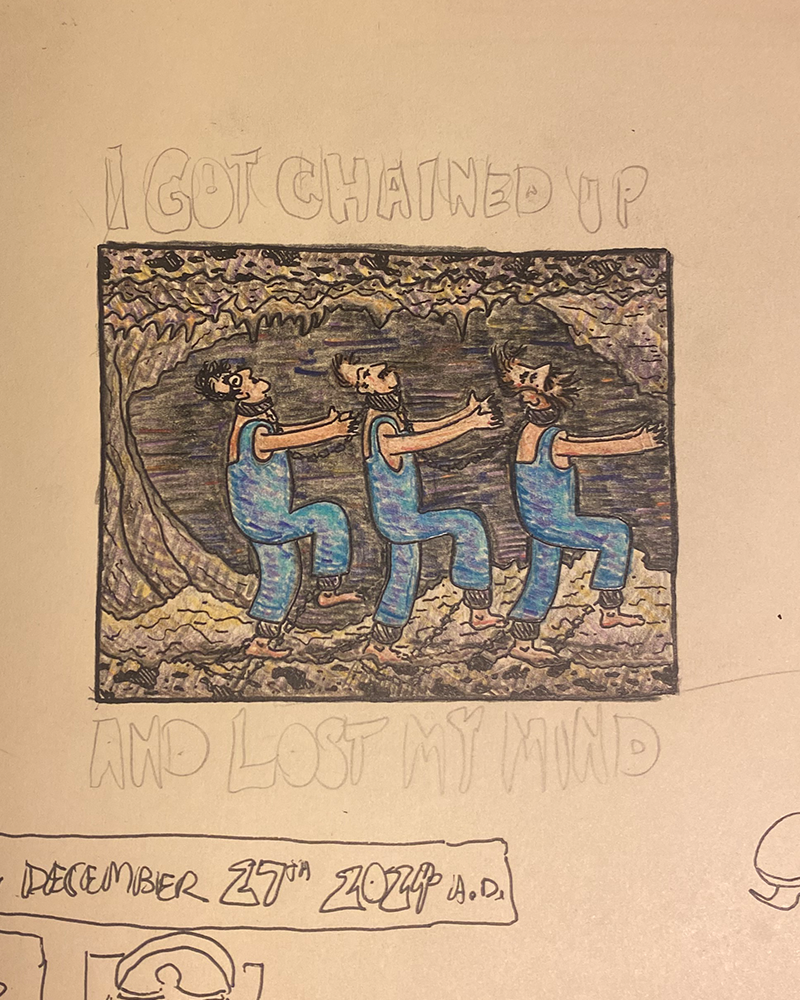 I GOT CHAINED UP
AND LOST MY MIND
DECEMBER 27TH 2024 A.D.